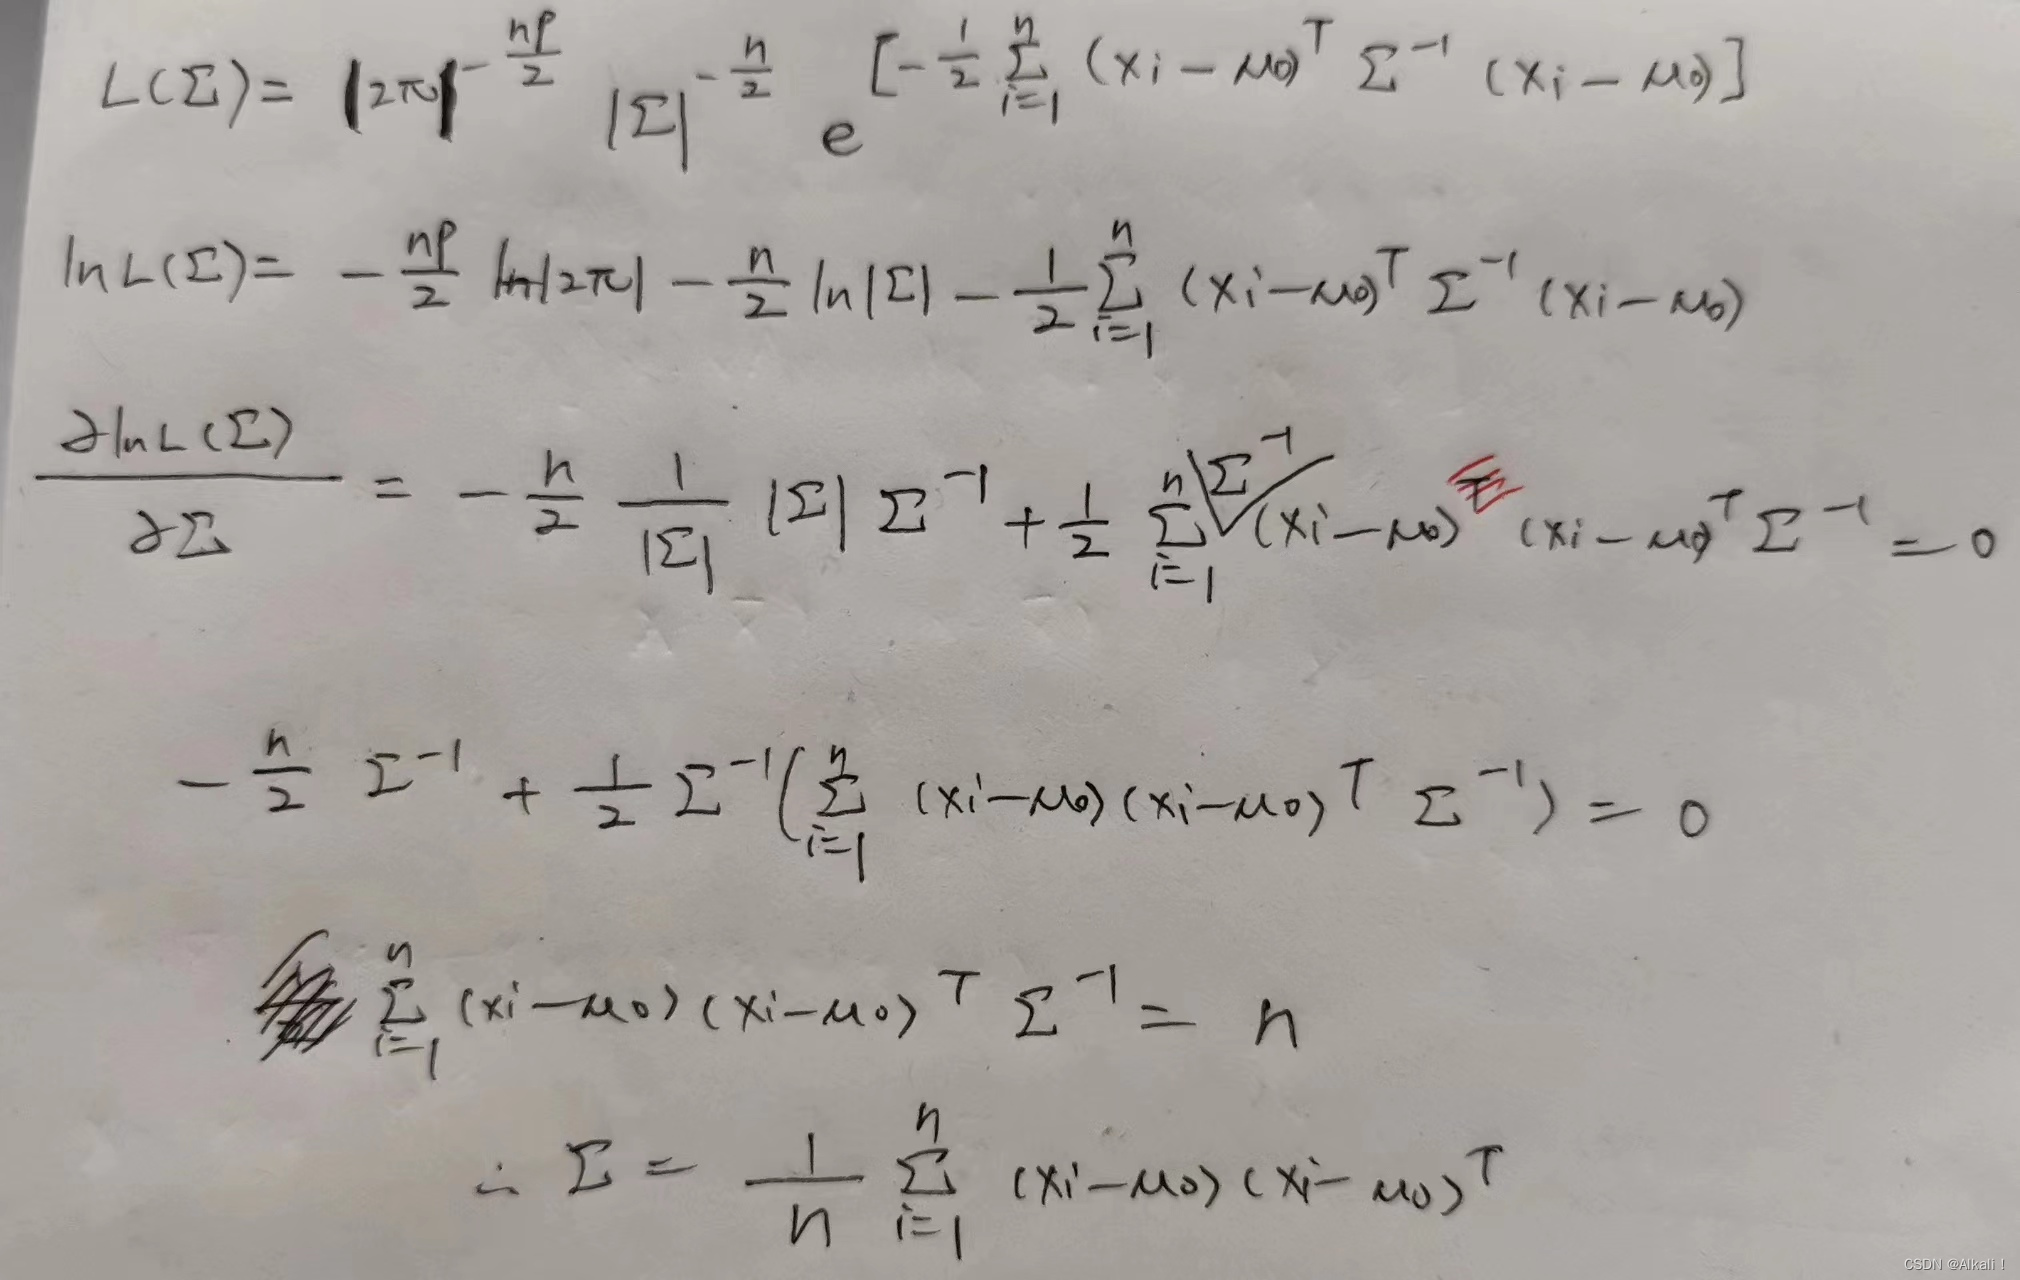 L(Σ) = |2π|^{-np/2} |Σ|^{-n/2} e^{[-1/2 Σ_{i=1}^{n} (xi-μ0)^T Σ^{-1} (xi-μ0)]}
lnL(Σ) = -np/2 ln|2π| - n/2 ln|Σ| - 1/2 Σ_{i=1}^{n} (xi-μ0)^T Σ^{-1} (xi-μ0)
∂lnL(Σ)/∂Σ = -n/2 1/|Σ| |Σ| Σ^{-1} + 1/2 Σ_{i=1}^{n} Σ^{-1} (xi-μ0) (xi-μ0)^T Σ^{-1} = 0
-n/2 Σ^{-1} + 1/2 Σ^{-1} (Σ_{i=1}^{n} (xi-μ0)(xi-μ0)^T Σ^{-1}) = 0
Σ_{i=1}^{n} (xi-μ0)(xi-μ0)^T Σ^{-1} = n
∴ Σ = 1/n Σ_{i=1}^{n} (xi-μ0)(xi-μ0)^T
CSDN @Alkali！